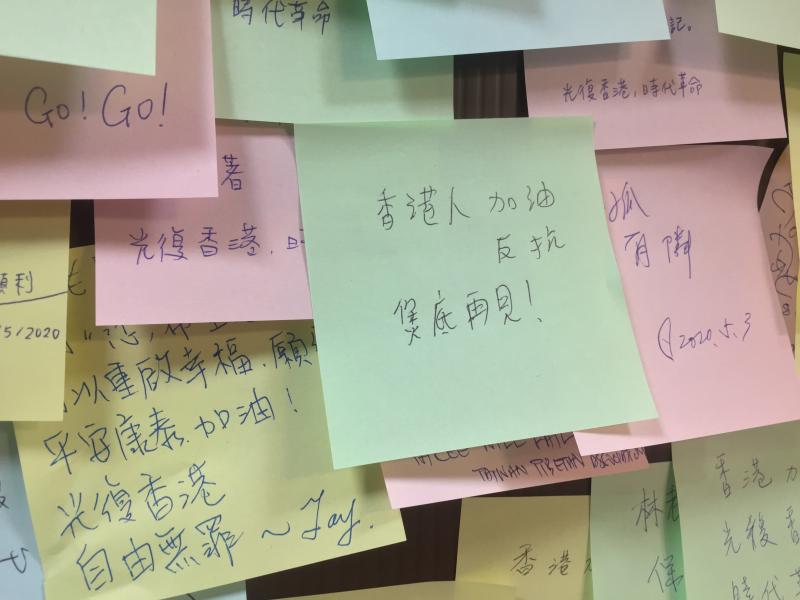 時代革命
記。
Go! Go!
光復香港,時代革命
著
光復香港,時
香港人 加油
反抗
煲底再見!
狐
有隣
2020.5.3
順利
/5/2020
以重啟幸福,願
平安康泰,加油!
光復香港
自由無罪 ~ Jay.
香港
林
保
香港加
光復香
時代革